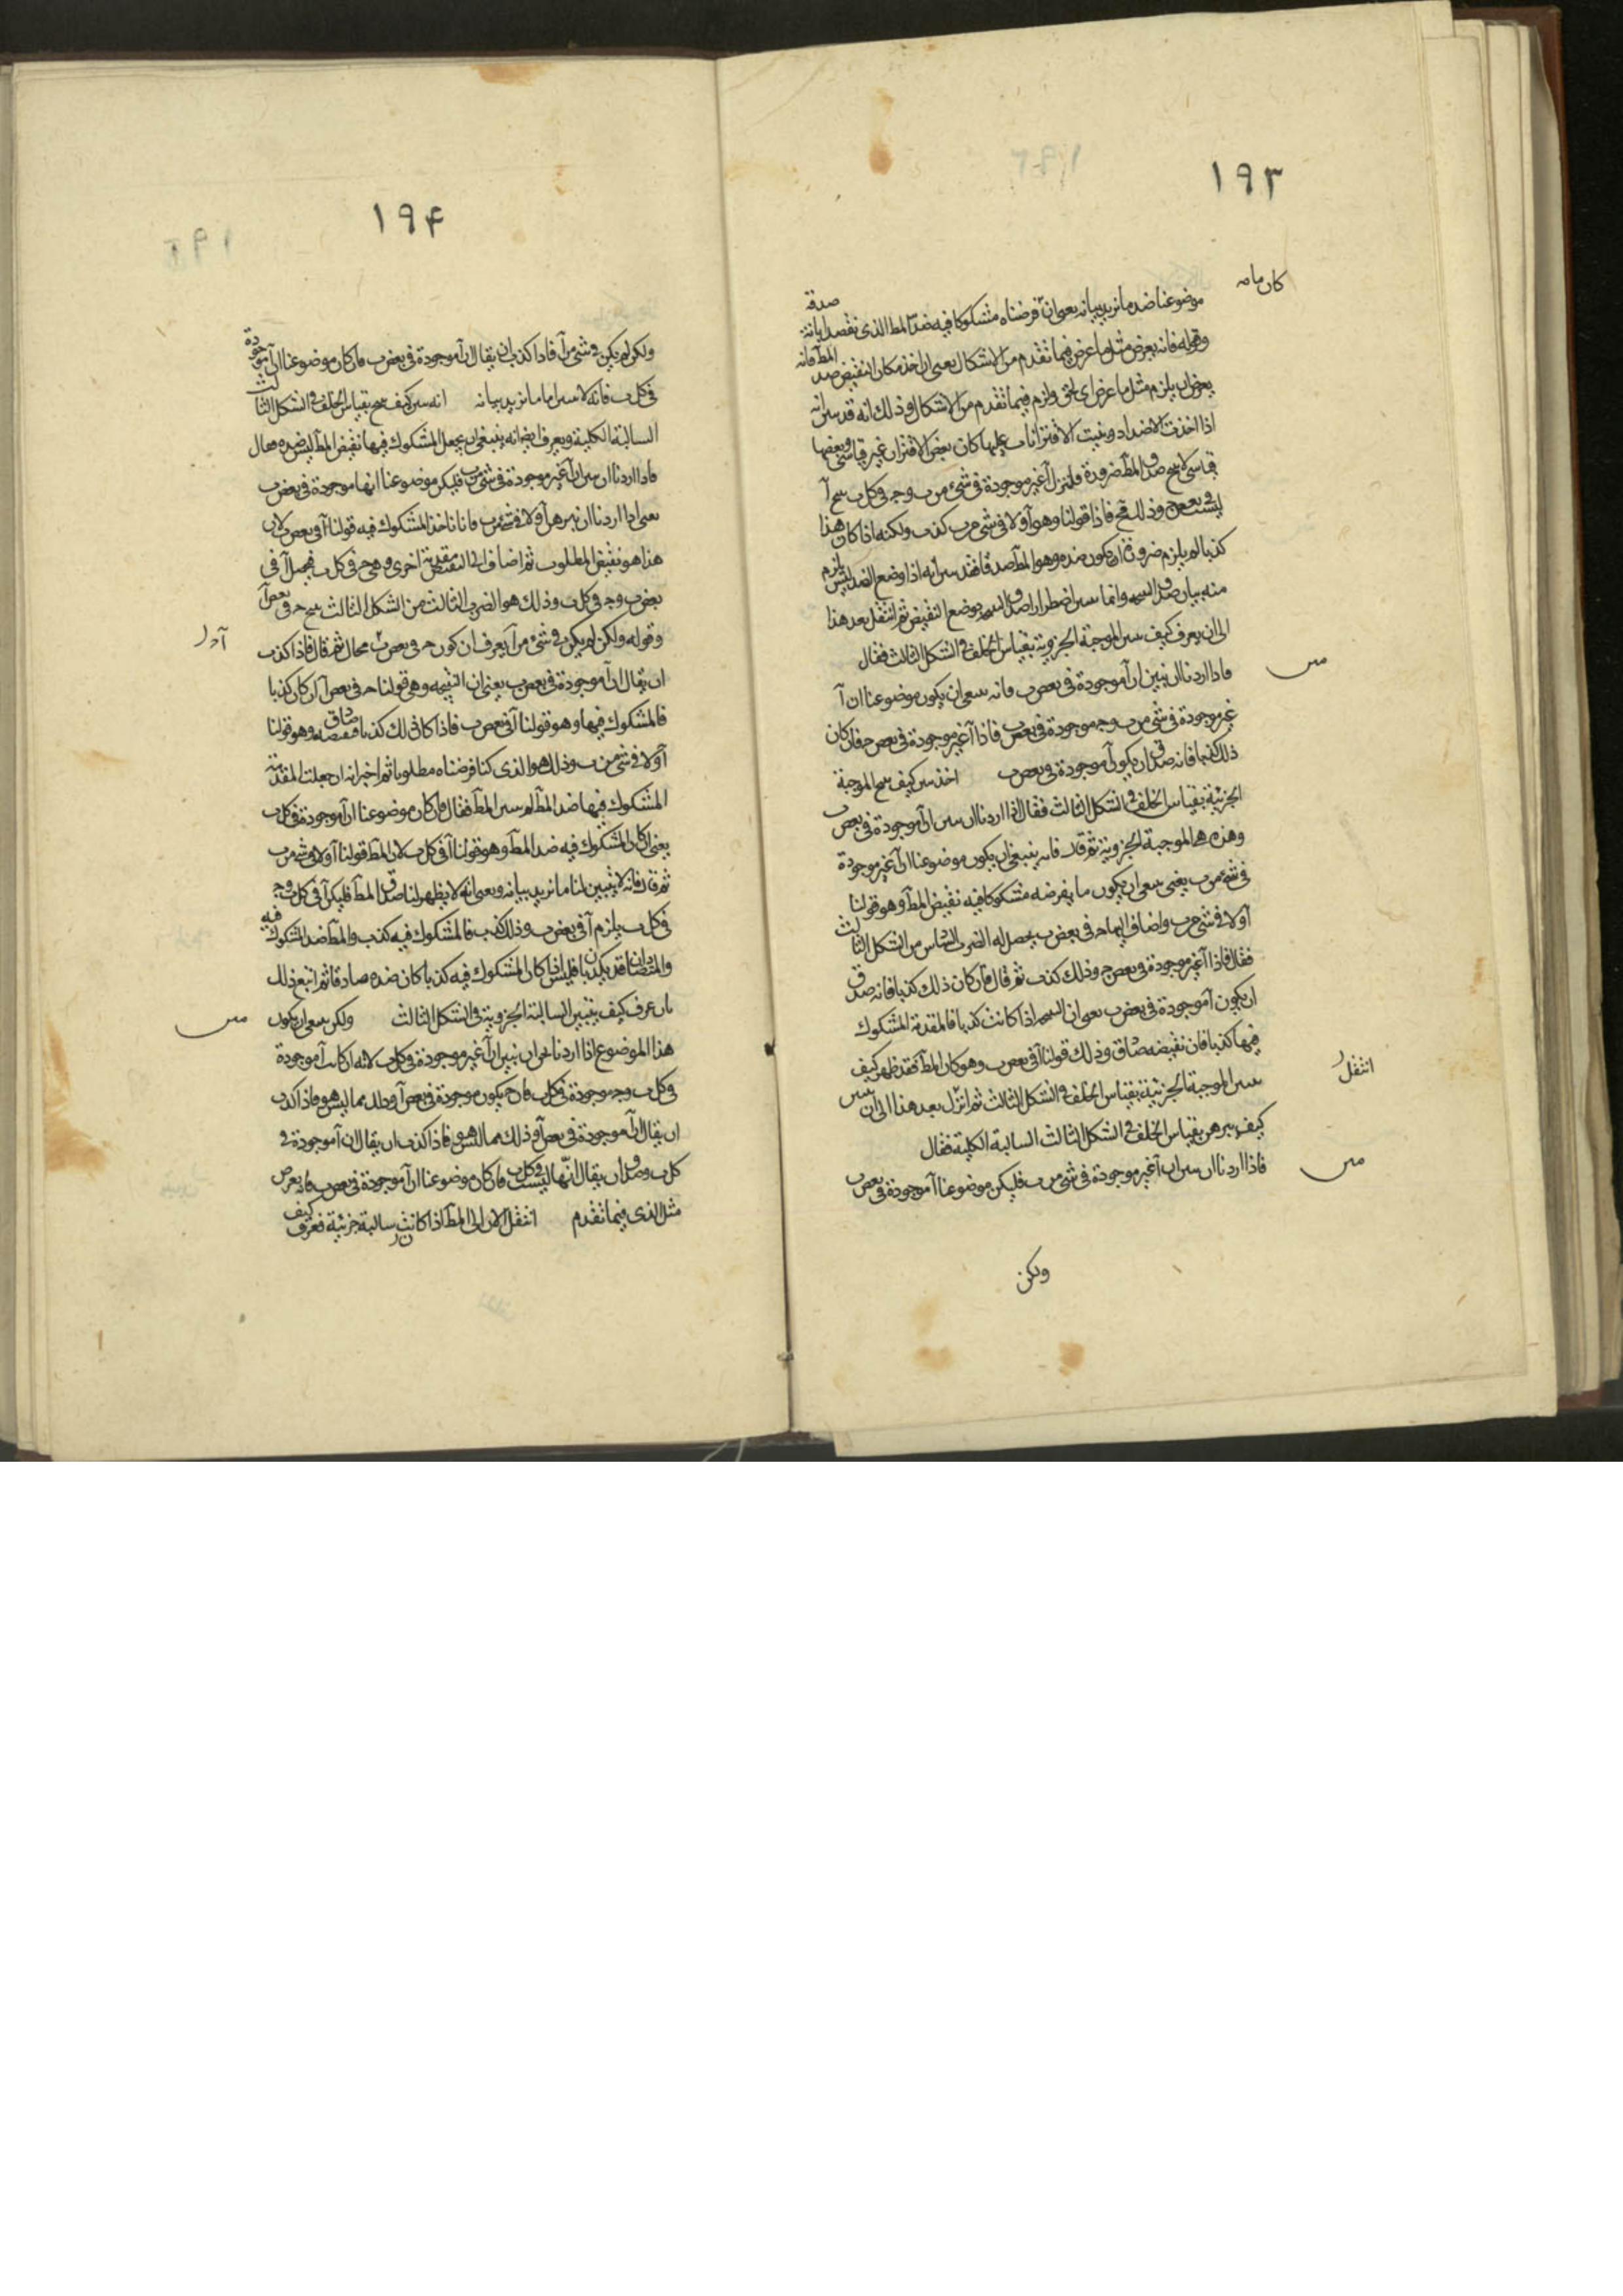 ١٩٣
كان مامه
موضوعنا ضد ما نريد بيانه يعنى ان فرضناه مشكوكا فيه ضد المط الذى نقصد ابانة صدقه
وقوله فانه يعرض مثل ما عرض فيما تقدم من الاشكال يعنى ان اخذ مكان النقيض ضد المط فانه
يعرض ان يلزم مثل ما عرض اى لحق ولزم فيما تقدم من الاشكال وذلك انه قد تبين انه
اذا اخذت الاضداد وبنيت الاقترانات عليها كان بعض الاقتران غير قياسى وبعضها
قياسى لا ينتج صدق المط ضرورة فلننزل آ غير موجودة فى شئ من ب وج فى كل ب ينتج آ
ليست فى بعض ج وذلك قبح فاذا قولنا وهو آ ولا فى شئ من ب كذب ولكنه اذا كان هذا
كذبا لم يلزم ضرورة ان يكون ضده وهو المط صدقا فقد تبين انه اذا وضع الضد ليس يلزم
منه بيان صدق النتيجة وانما تبين اضطرارا صدق النتيجة بوضع النقيض ثم انتقل بعد هذا
الى ان يعرف كيف تبين الموجبة الجزوية بقياس الخلف فى الشكل الثالث فقال
فاذا اردنا ان نبين ان آ موجودة فى بعض ب فانه ينبغى ان يكون موضوعنا ان آ
غير موجودة فى شئ من ب وج موجودة فى بعض ب فاذا آ غير موجودة فى بعض ج فان كان
ذلك كذبا فانه صدق ان يكون آ موجودة فى بعض ب اخذ يبين كيف ينتج الموجبة
الجزئية بقياس الخلف فى الشكل الثالث فقال اذا اردنا ان نبين ان آ موجودة فى بعض ب
وهذه هى الموجبة الجزوية ثم قال فانه ينبغى ان يكون موضوعنا ان آ غير موجودة
فى شئ من ب يعنى ينبغى ان يكون ما يفرضه مشكوكا فيه نقيض المط وهو قولنا
آ ولا فى شئ من ب واضاف اليها ج فى بعض ب يحصل له الضرب السادس من الشكل الثالث
فقال فاذا آ غير موجودة فى بعض ج وذلك كذب ثم قال فان كان ذلك كذبا فانه صدق
ان يكون آ موجودة فى بعض ب يعنى ان النتيجة اذا كانت كذبا فالمقدمة المشكوك
فيها كذبا فان نقيضه صادق وذلك قولنا آ فى بعض ب وهو كان المط فقد ظهر كيف
تبين الموجبة الجزئية بقياس الخلف فى الشكل الثالث ثم انزل بعد هذا الى ان يبين
انتقل
كيف يبرهن بقياس الخلف فى الشكل الثالث السالبة الكلية فقال
فاذا اردنا ان نبين ان آ غير موجودة فى شئ من ب فليكن موضوعنا آ موجودة فى بعض ب
ولكن
١٩۴
ولكن لم يكن فى شئ من آ فاذا كذب ان يقال ان آ موجودة فى بعض ب فان كان موضوعنا ان آ موجودة
فى كل ب فانه لا يتبين لنا ما نريد بيانه انه يبين كيف ينتج بقياس الخلف فى الشكل الثالث
السالبة الكلية ويعرف ايضا انه ينبغى ان يجعل المشكوك فيها نقيض المط ليس ضده فقال
فاذا اردنا ان نبين ان آ غير موجودة فى شئ من ب فليكن موضوعنا انها موجودة فى بعض ب
يعنى اذا اردنا ان نبرهن آ ولا فى شئ من ب فانا ناخذ المشكوك فيه قولنا آ فى بعض ب لان
هذا هو نقيض المطلوب ثم اضاف الى النقيض مقدمة اخرى وهى ج فى كل ب فحصل آ فى
بعض ب وج فى كل ب وذلك هو الضرب الثالث من الشكل الثالث ينتج ج فى بعض آ
وقوله ولكن لم يكن فى شئ من آ يعرف ان كون ج فى بعض ب محال ثم قال فاذا كذب
آ ول
ان يقال ان آ موجودة فى بعض ب يعنى ان النتيجة وهى قولنا ج فى بعض آ ان كان كذبا
فالمشكوك فيها وهو قولنا آ فى بعض ب فاذا كان ذلك كذبا فنقيضه صادق وهو قولنا
آ ولا فى شئ من ب وذلك هو الذى كنا فرضناه مطلوبا ثم اخبر انه ان جعلت المقدمة
المشكوك فيها ضد المط لم يتبين المط فقال فان كان موضوعنا ان آ موجودة فى كل ب
يعنى ان كان المشكوك فيه ضد المط وهو قولنا آ فى كل ب لان المط قولنا آ ولا فى شئ من ب
ثم قال فانه لا يتبين لنا ما نريد بيانه ويعنى انه لا يظهر لنا صدق المط فليكن آ فى كل ب وج
فى كل ب يلزم آ فى بعض ب وذلك كذب فالمشكوك فيه كذب والمط ضد المشكوك فيه
والمتضادان قد يكذبان فليس اذا كان المشكوك فيه كذبا كان ضده صادقا ثم اتبع ذلك
بان عرف كيف يتبين السالبة الجزوية فى الشكل الثالث ولكن ينبغى ان يكون
هذا الموضوع اذا اردنا نحن ان نبين ان آ غير موجودة فى كل ب لانه ان كانت آ موجودة
فى كل ب وج موجودة فى كل ب فان ج يكون موجودة فى بعض آ وذلك مما ليس هو فاذا كذب
ان يقال ان آ موجودة فى بعض آ وذلك مما ليس هو فاذا كذب ان يقال ان آ موجودة فى
كل ب وصدق ان يقال انها ليست فى كل ب فان كان موضوعنا ان آ موجودة فى بعض ب فانه يعرض
مثل الذى فيما تقدم انتقل الان الى المط اذا كانت سالبة جزئية فعرف كيف